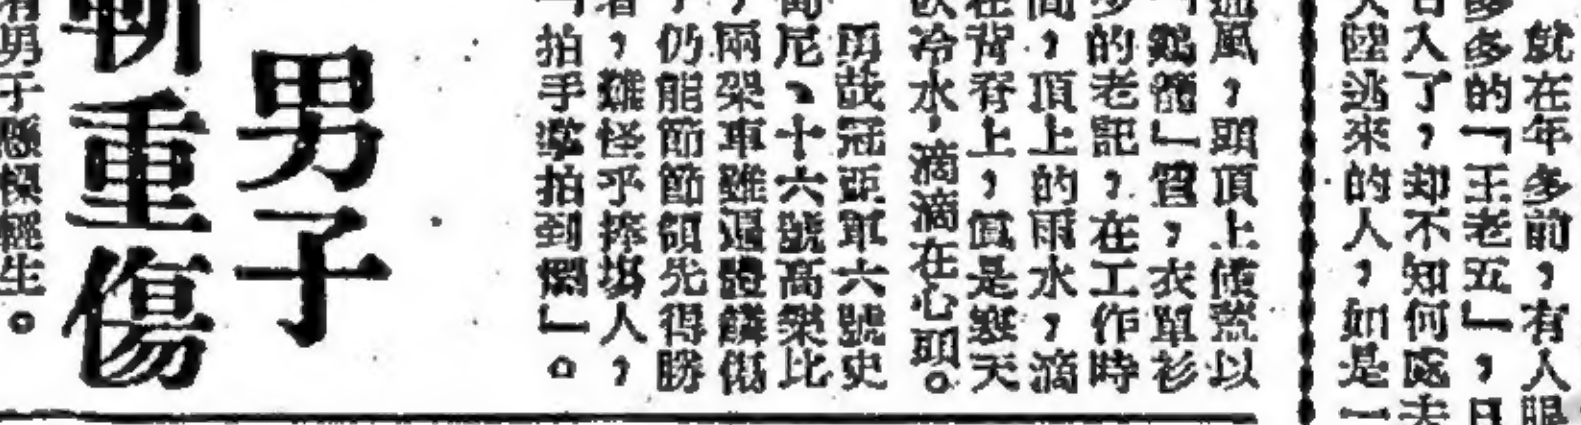 就在年多前，有人眼
多多的「王老五」，日
日入了，却不知何處去
大陸逃來的人，如是一
風，頭頂上僅蓋以
「鷄籠」官，衣單衫
的老記，在工作時
間，頂上的雨水，滴
在背脊上，真是寒天
飲冷水，滴滴在心頭。
冠亞軍六號史
尼、十六號高樂比
，兩架車雖遍體鱗傷
仍能節節領先得勝
者，難怪乎捧場人，
拍手掌拍到爛」。
男子
斬重傷
有男子懸樑輕生。